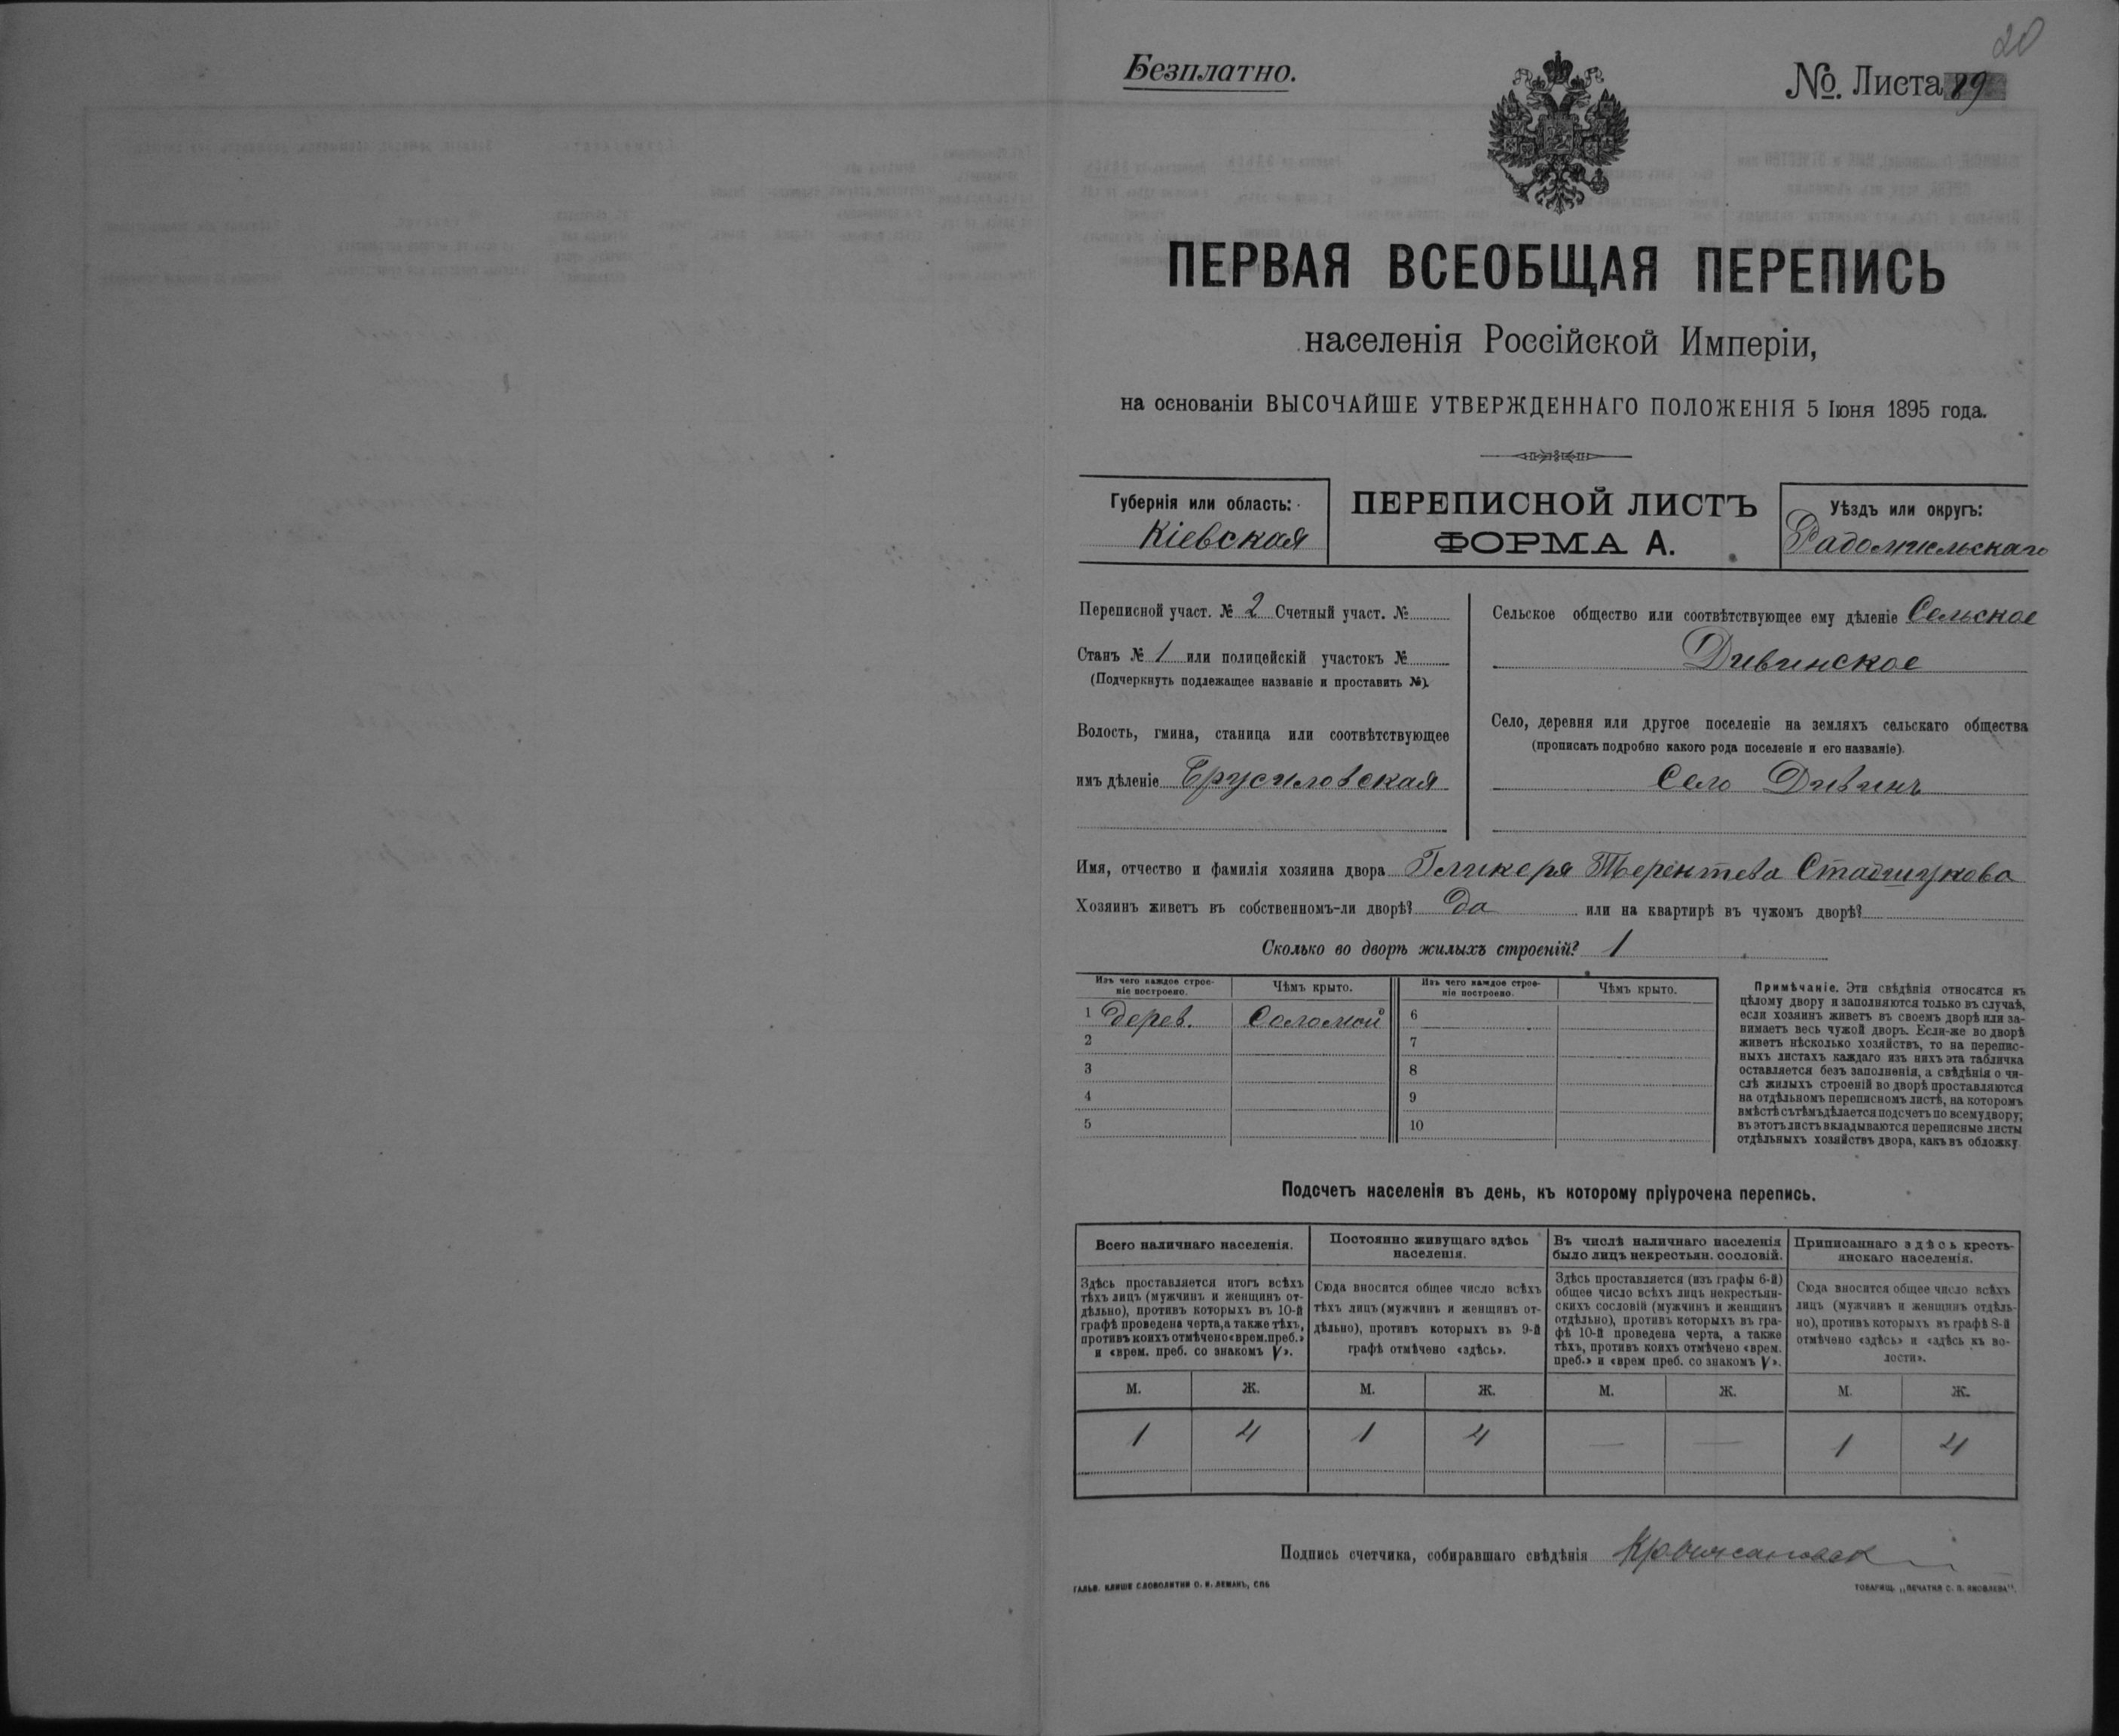 20
Безплатно.
№. Листа 89
ПЕРВАЯ ВСЕОБЩАЯ ПЕРЕПИСЬ
населенія Россійской Имперіи,
на основаніи ВЫСОЧАЙШЕ УТВЕРЖДЕННАГО ПОЛОЖЕНІЯ 5 Іюня 1895 года.
Губернія или область:
Кіевская
ПЕРЕПИСНОЙ ЛИСТЪ
ФОРМА А.
Уѣздъ или округъ:
Радомысльскаго
Переписной участ. № 2 Счетный участ. №
Станъ № 1 или полицейскій участокъ №
(Подчеркнуть подлежащее названіе и проставить №).
Волость, гмина, станица или соотвѣтствующее
имъ дѣленіе Брусиловская
Сельское общество или соотвѣтствующее ему дѣленіе Сельское
Дивинское
Село, деревня или другое поселеніе на земляхъ сельскаго общества
(прописать подробно какого рода поселеніе и его названіе).
Село Дивинъ
Имя, отчество и фамилія хозяина двора Гликеря Терентева
Хозяинъ живетъ въ собственномъ-ли дворѣ? да или на квартирѣ въ чужомъ дворѣ?
Сколько во дворѣ жилыхъ строеній? 1
Изъ чего каждое строе-
ніе построено.
Чѣмъ крыто.
Изъ чего каждое строе-
ніе построено.
Чѣмъ крыто.
1 Дерев. Соломой 6
2 7
3 8
4 9
5 10
Примѣчаніе. Эти свѣдѣнія относятся къ
цѣлому двору и заполняются только въ случаѣ,
если хозяинъ живетъ въ своемъ дворѣ или за-
нимаетъ весь чужой дворъ. Если-же во дворѣ
живетъ нѣсколько хозяйствъ, то на перепис-
ныхъ листахъ каждаго изъ нихъ эта табличка
оставляется безъ заполненія, а свѣдѣнія о чи-
слѣ жилыхъ строеній во дворѣ проставляются
на отдѣльномъ переписномъ листѣ, на которомъ
вмѣстѣ съ тѣмъ дѣлается подсчетъ по всему двору;
въ этотъ листъ вкладываются переписные листы
отдѣльныхъ хозяйствъ двора, какъ въ обложку
Подсчетъ населенія въ день, къ которому пріурочена перепись.
Всего наличнаго населенія.
Здѣсь проставляется итогъ всѣхъ
тѣхъ лицъ (мужчинъ и женщинъ от-
дѣльно), противъ которыхъ въ 10-й
графѣ проведена черта, а также тѣхъ,
противъ коихъ отмѣчено «врем. преб.»
и «врем. преб. со знакомъ V».
Постоянно живущаго здѣсь
населенія.
Сюда вносится общее число всѣхъ
тѣхъ лицъ (мужчинъ и женщинъ от-
дѣльно), противъ которыхъ въ 9-й
графѣ отмѣчено «здѣсь».
Въ числѣ наличнаго населенія
было лицъ некрестьян. сословій.
Здѣсь проставляется (изъ графы 6-й)
общее число всѣхъ лицъ некрестьян-
скихъ сословій (мужчинъ и женщинъ
отдѣльно), противъ которыхъ въ гра-
фѣ 10-й проведена черта, а также
тѣхъ, противъ коихъ отмѣчено «врем.
преб.» и «врем преб. со знакомъ V».
Приписаннаго здѣсь кресть-
янскаго населенія.
Сюда вносится общее число всѣхъ
лицъ (мужчинъ и женщинъ отдѣль-
но), противъ которыхъ въ графѣ 8-й
отмѣчено «здѣсь» и «здѣсь къ во-
лости».
М. Ж. М. Ж. М. Ж. М. Ж.
1 4 1 4 — — 1 4
Подпись счетчика, собиравшаго свѣдѣнія
ГАЛЬВ. КЛИШЕ СЛОВОЛИТНИ О. И. ЛЕМАНЪ, СПБ
ТОВАРИЩ. „ПЕЧАТНЯ С. П. ЯКОВЛЕВА".